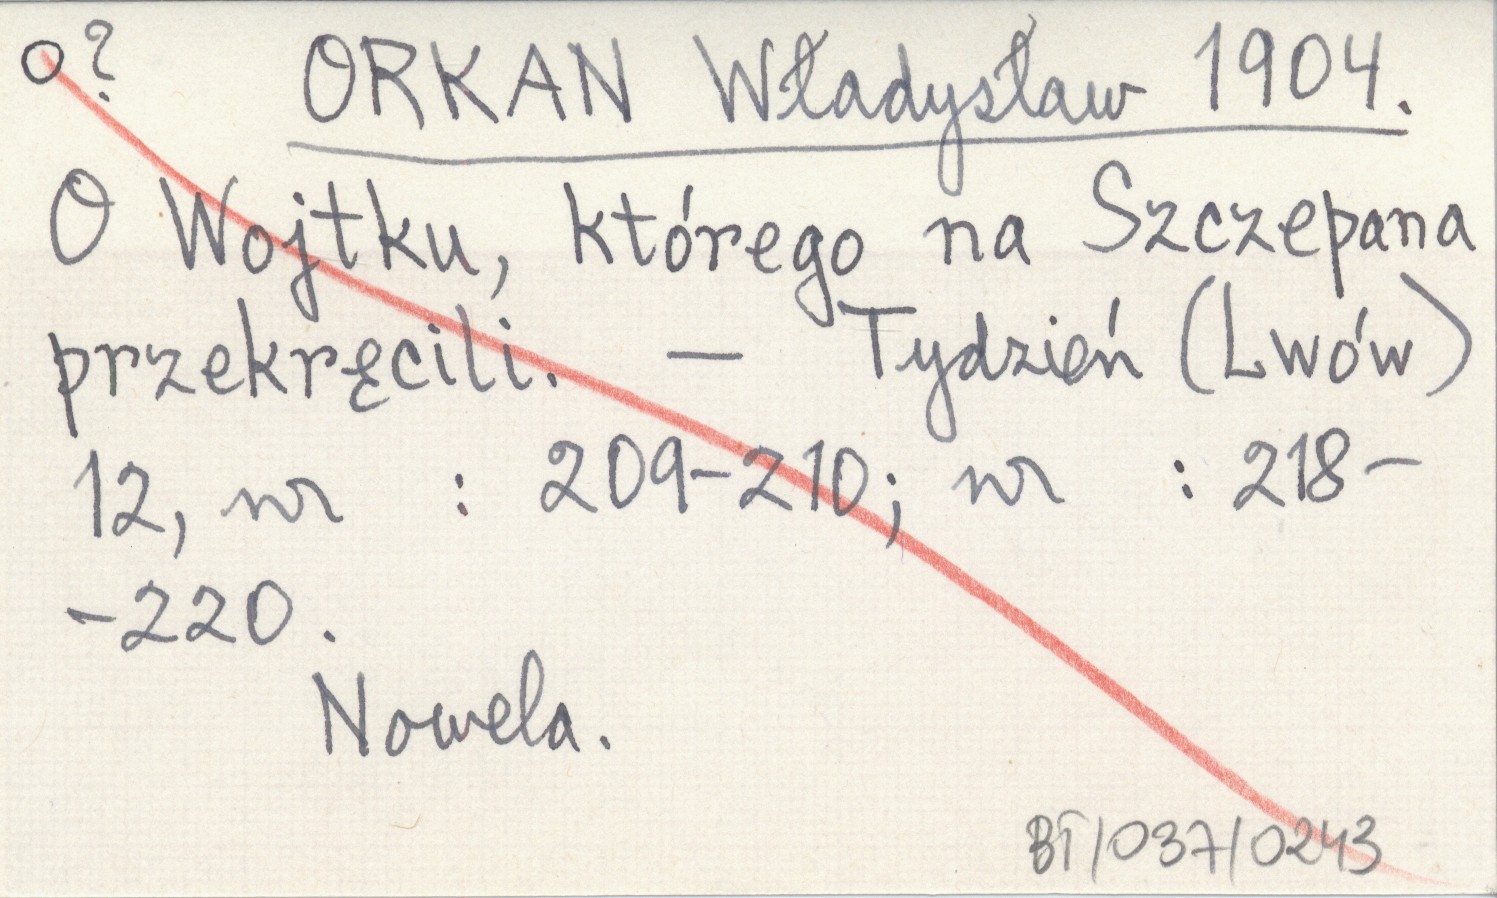 O ? ORKAN Władysław 1904.
O Wojtku, którego na Szczepana
przekręcili. — Tydzień (Lwów)
12, nr : 209-210; nr : 218-
-220.
Nowela.
BT/037/0243